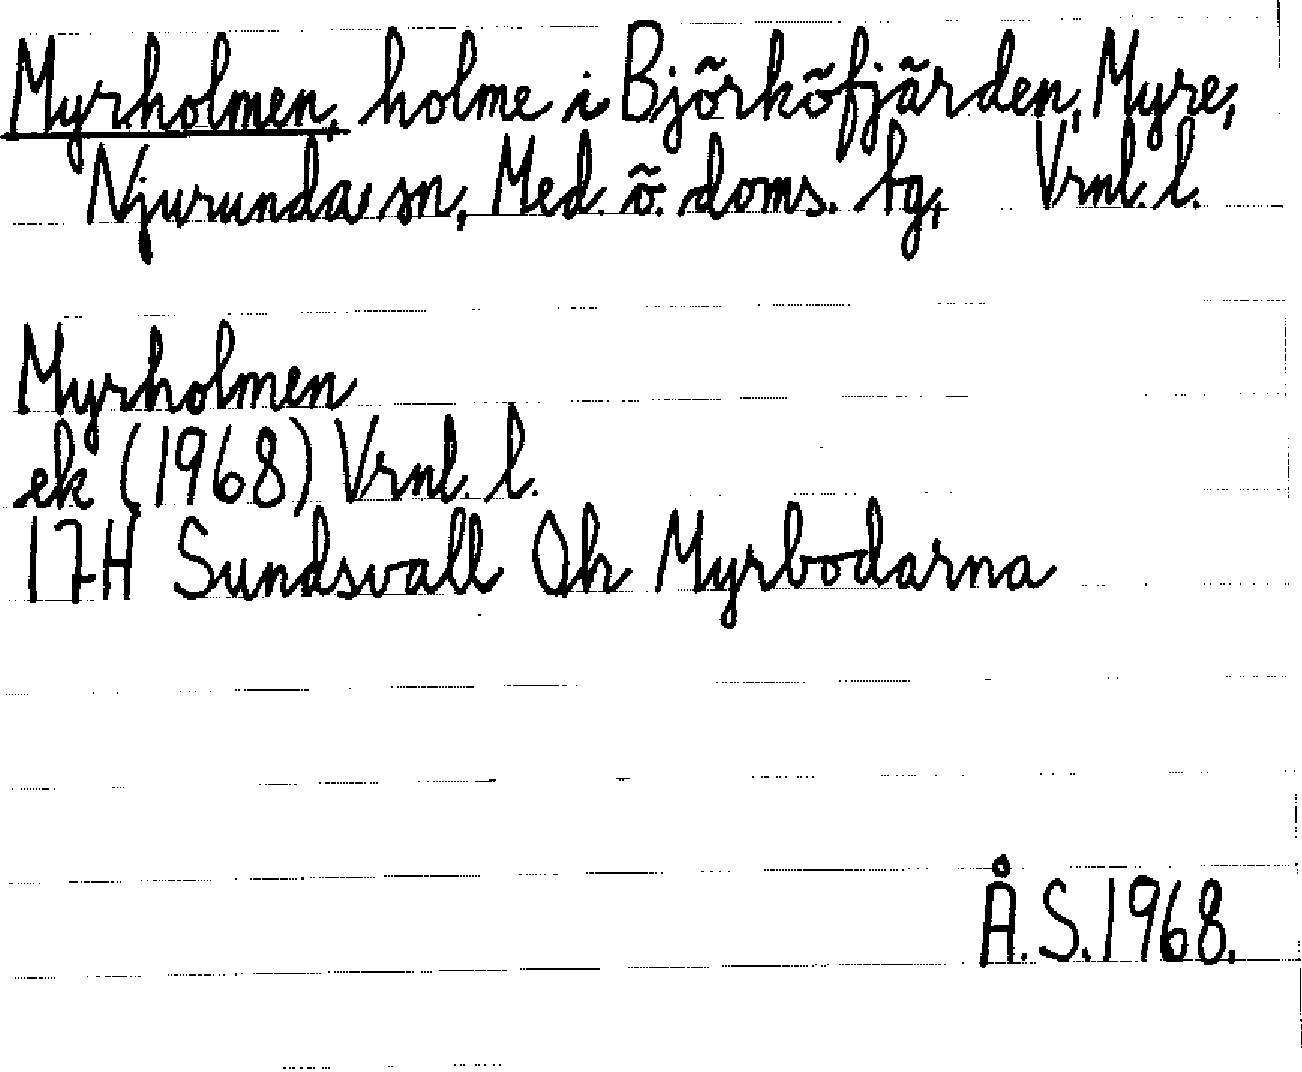 Myrholmen, holme i Björköfjärden, Myre,
Njurunda sn, Med. ö. doms. tg, Vrnl. l.
Myrholmen
ek (1968) Vrnl. l.
17H Sundsvall 0h Myrbodarna
Å.S.1968.